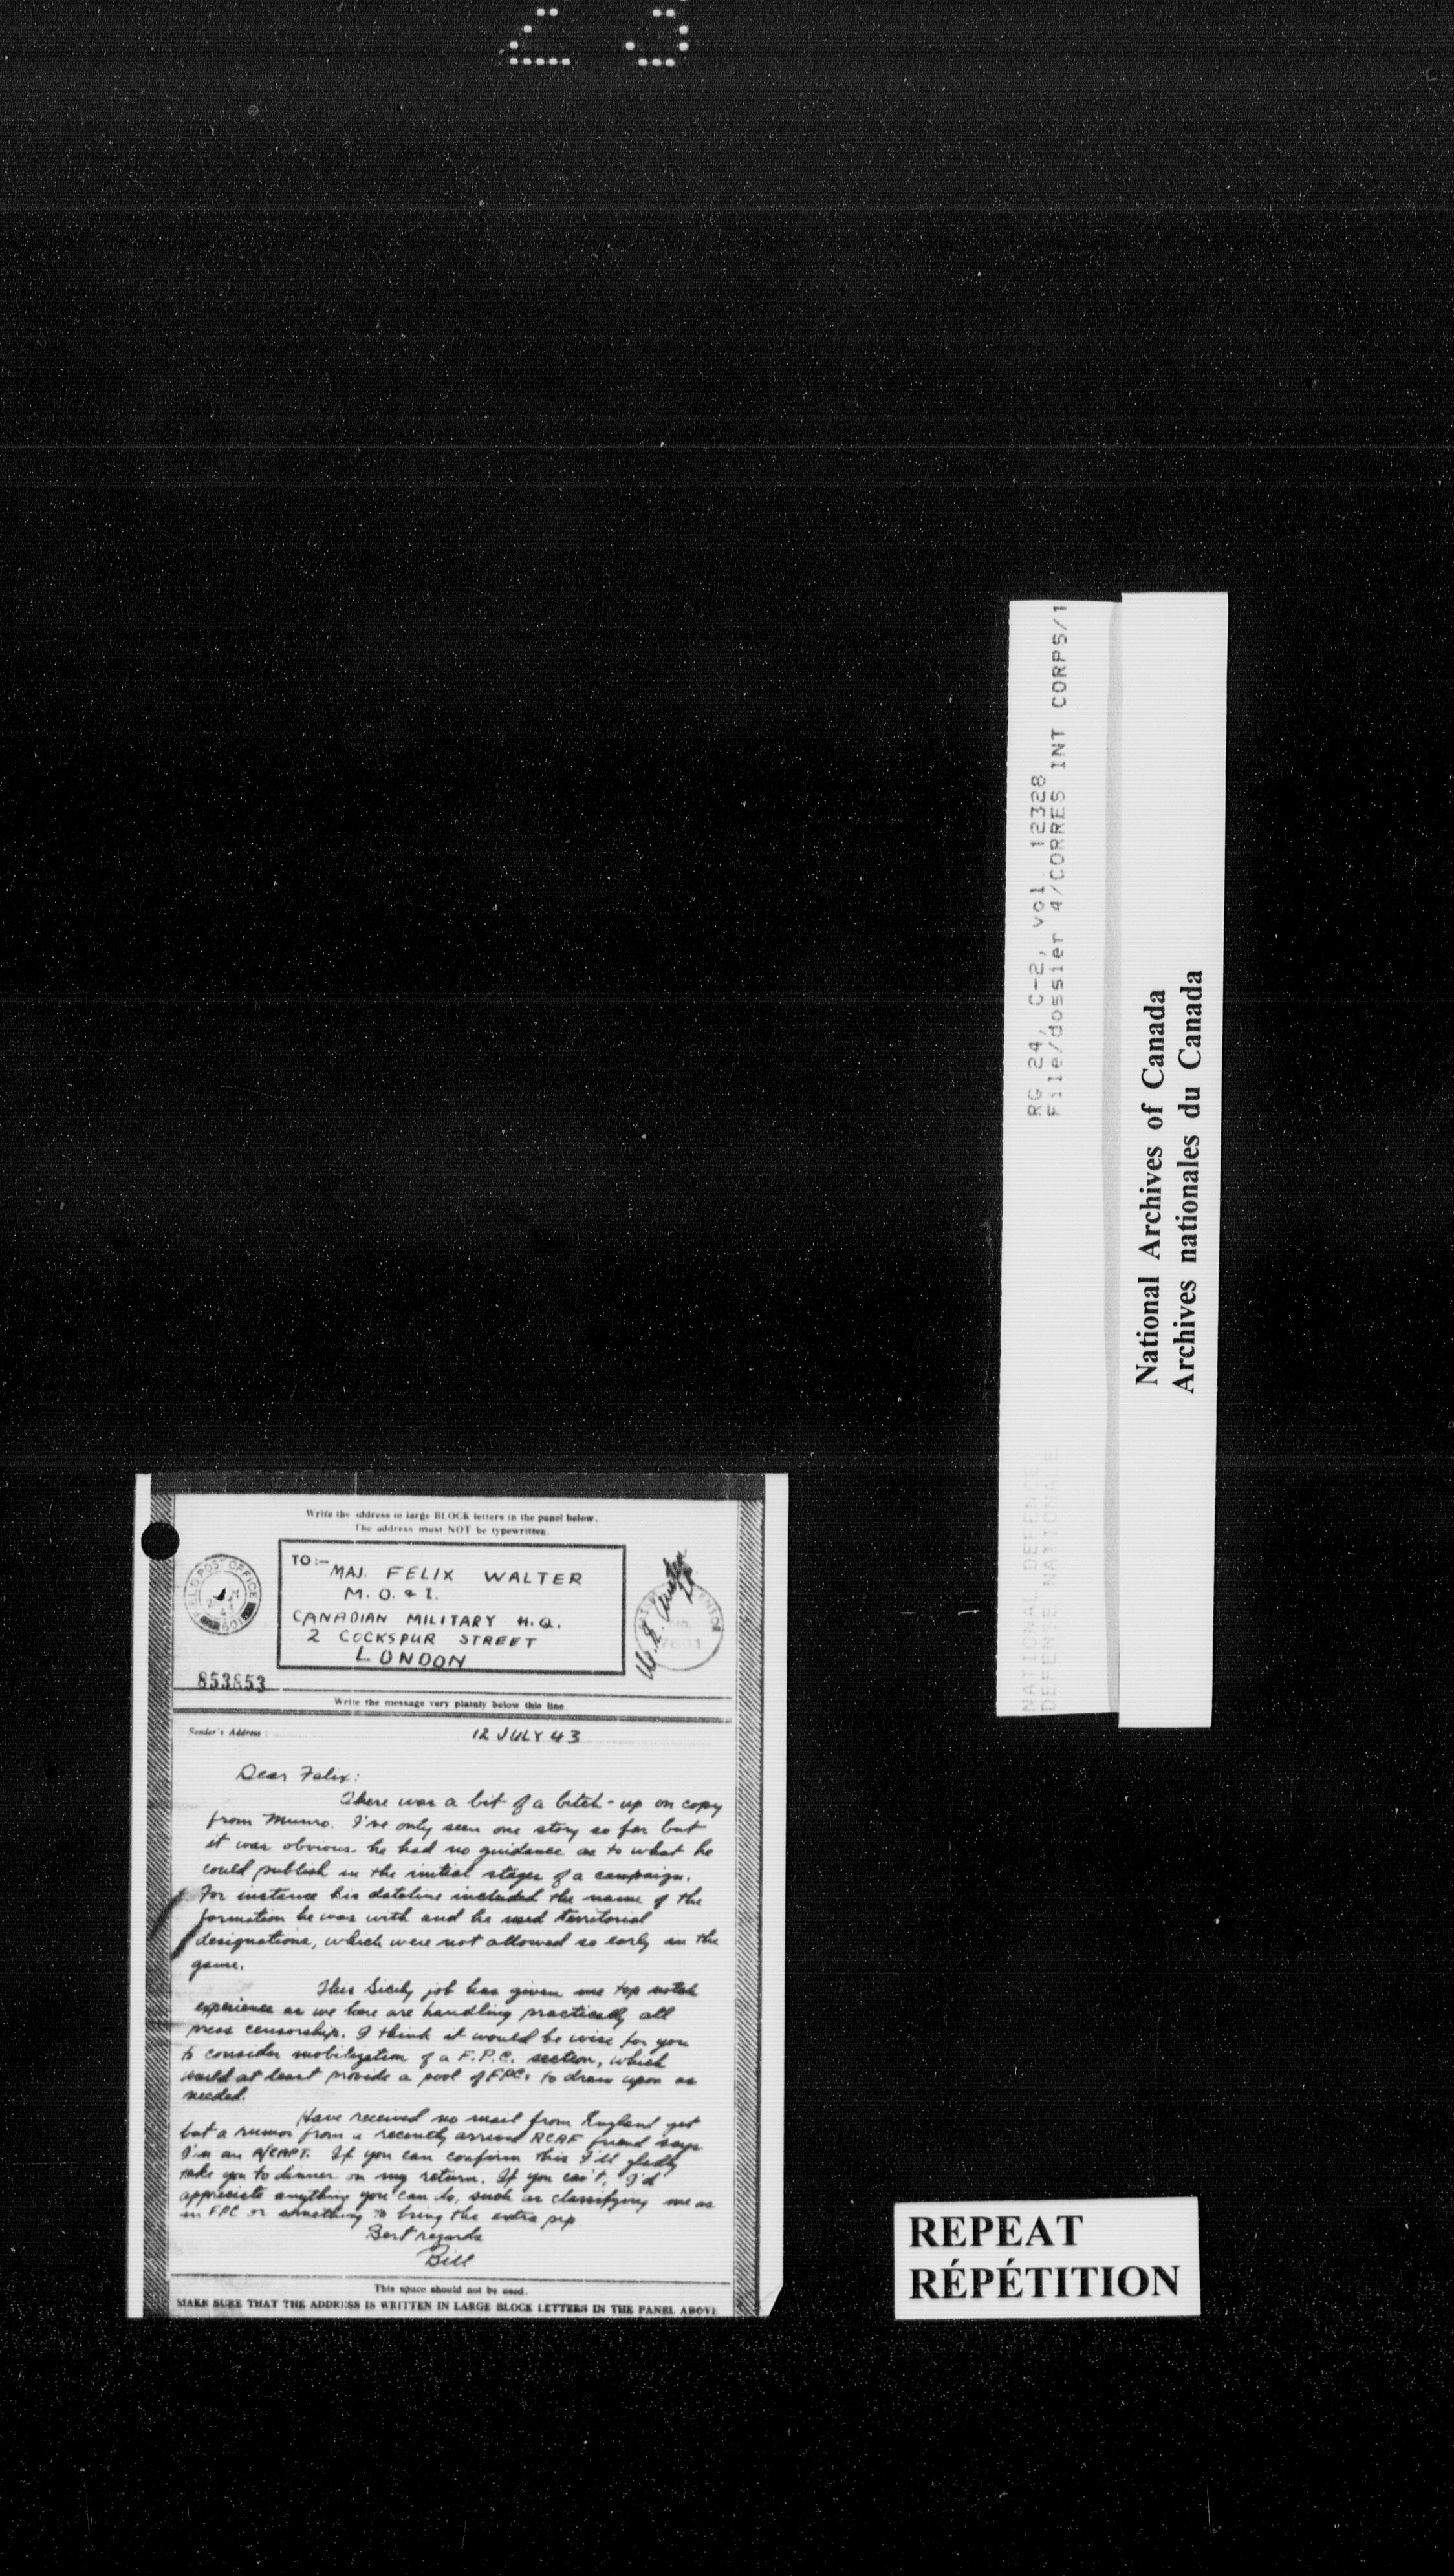 RG 24, C-2, vol. 12328
File/dossier 4/CORRES INT CORPS/1
NATIONAL DEFENCE
DEFENSE NATIONALE
National Archives of Canada
Archives nationales du Canada
Write the address in large BLOCK letters in the panel below.
The address must NOT be typewritten.
FIELD POST OFFICE
601
TO:-
MAJ. FELIX WALTER
M.O. & I.
CANADIAN MILITARY H.Q.
2 COCKSPUR STREET
LONDON
853853
Write the message very plainly below this line.
Sender's Address:
12 JULY 43
Dear Felix:
There was a bit of a bitch-up on copy
from Munro. I've only seen one story so far but
it was obvious he had no guidance as to what he
could publish in the initial stages of a campaign.
For instance his dateline included the name of the
formation he was with and he used territorial
designations, which were not allowed so early in the
game.
This Sicily job has given me top notch
experience as we here are handling practically all
press censorship. I think it would be wise for you
to consider mobilization of a F.P.C. section, which
would at least provide a pool of FPCs to draw upon as
needed.
Have received no mail from England yet
but a rumor from a recently arrived RCAF friend says
I'm an A/CAPT. If you can confirm this I'll gladly
take you to dinner on my return. If you can't, I'd
appreciate anything you can do, such as classifying me as
an FPC or something to bring the extra pip
Best regards
Bill
This space should not be used.
MAKE SURE THAT THE ADDRESS IS WRITTEN IN LARGE BLOCK LETTERS IN THE PANEL ABOVE
REPEAT
RÉPÉTITION